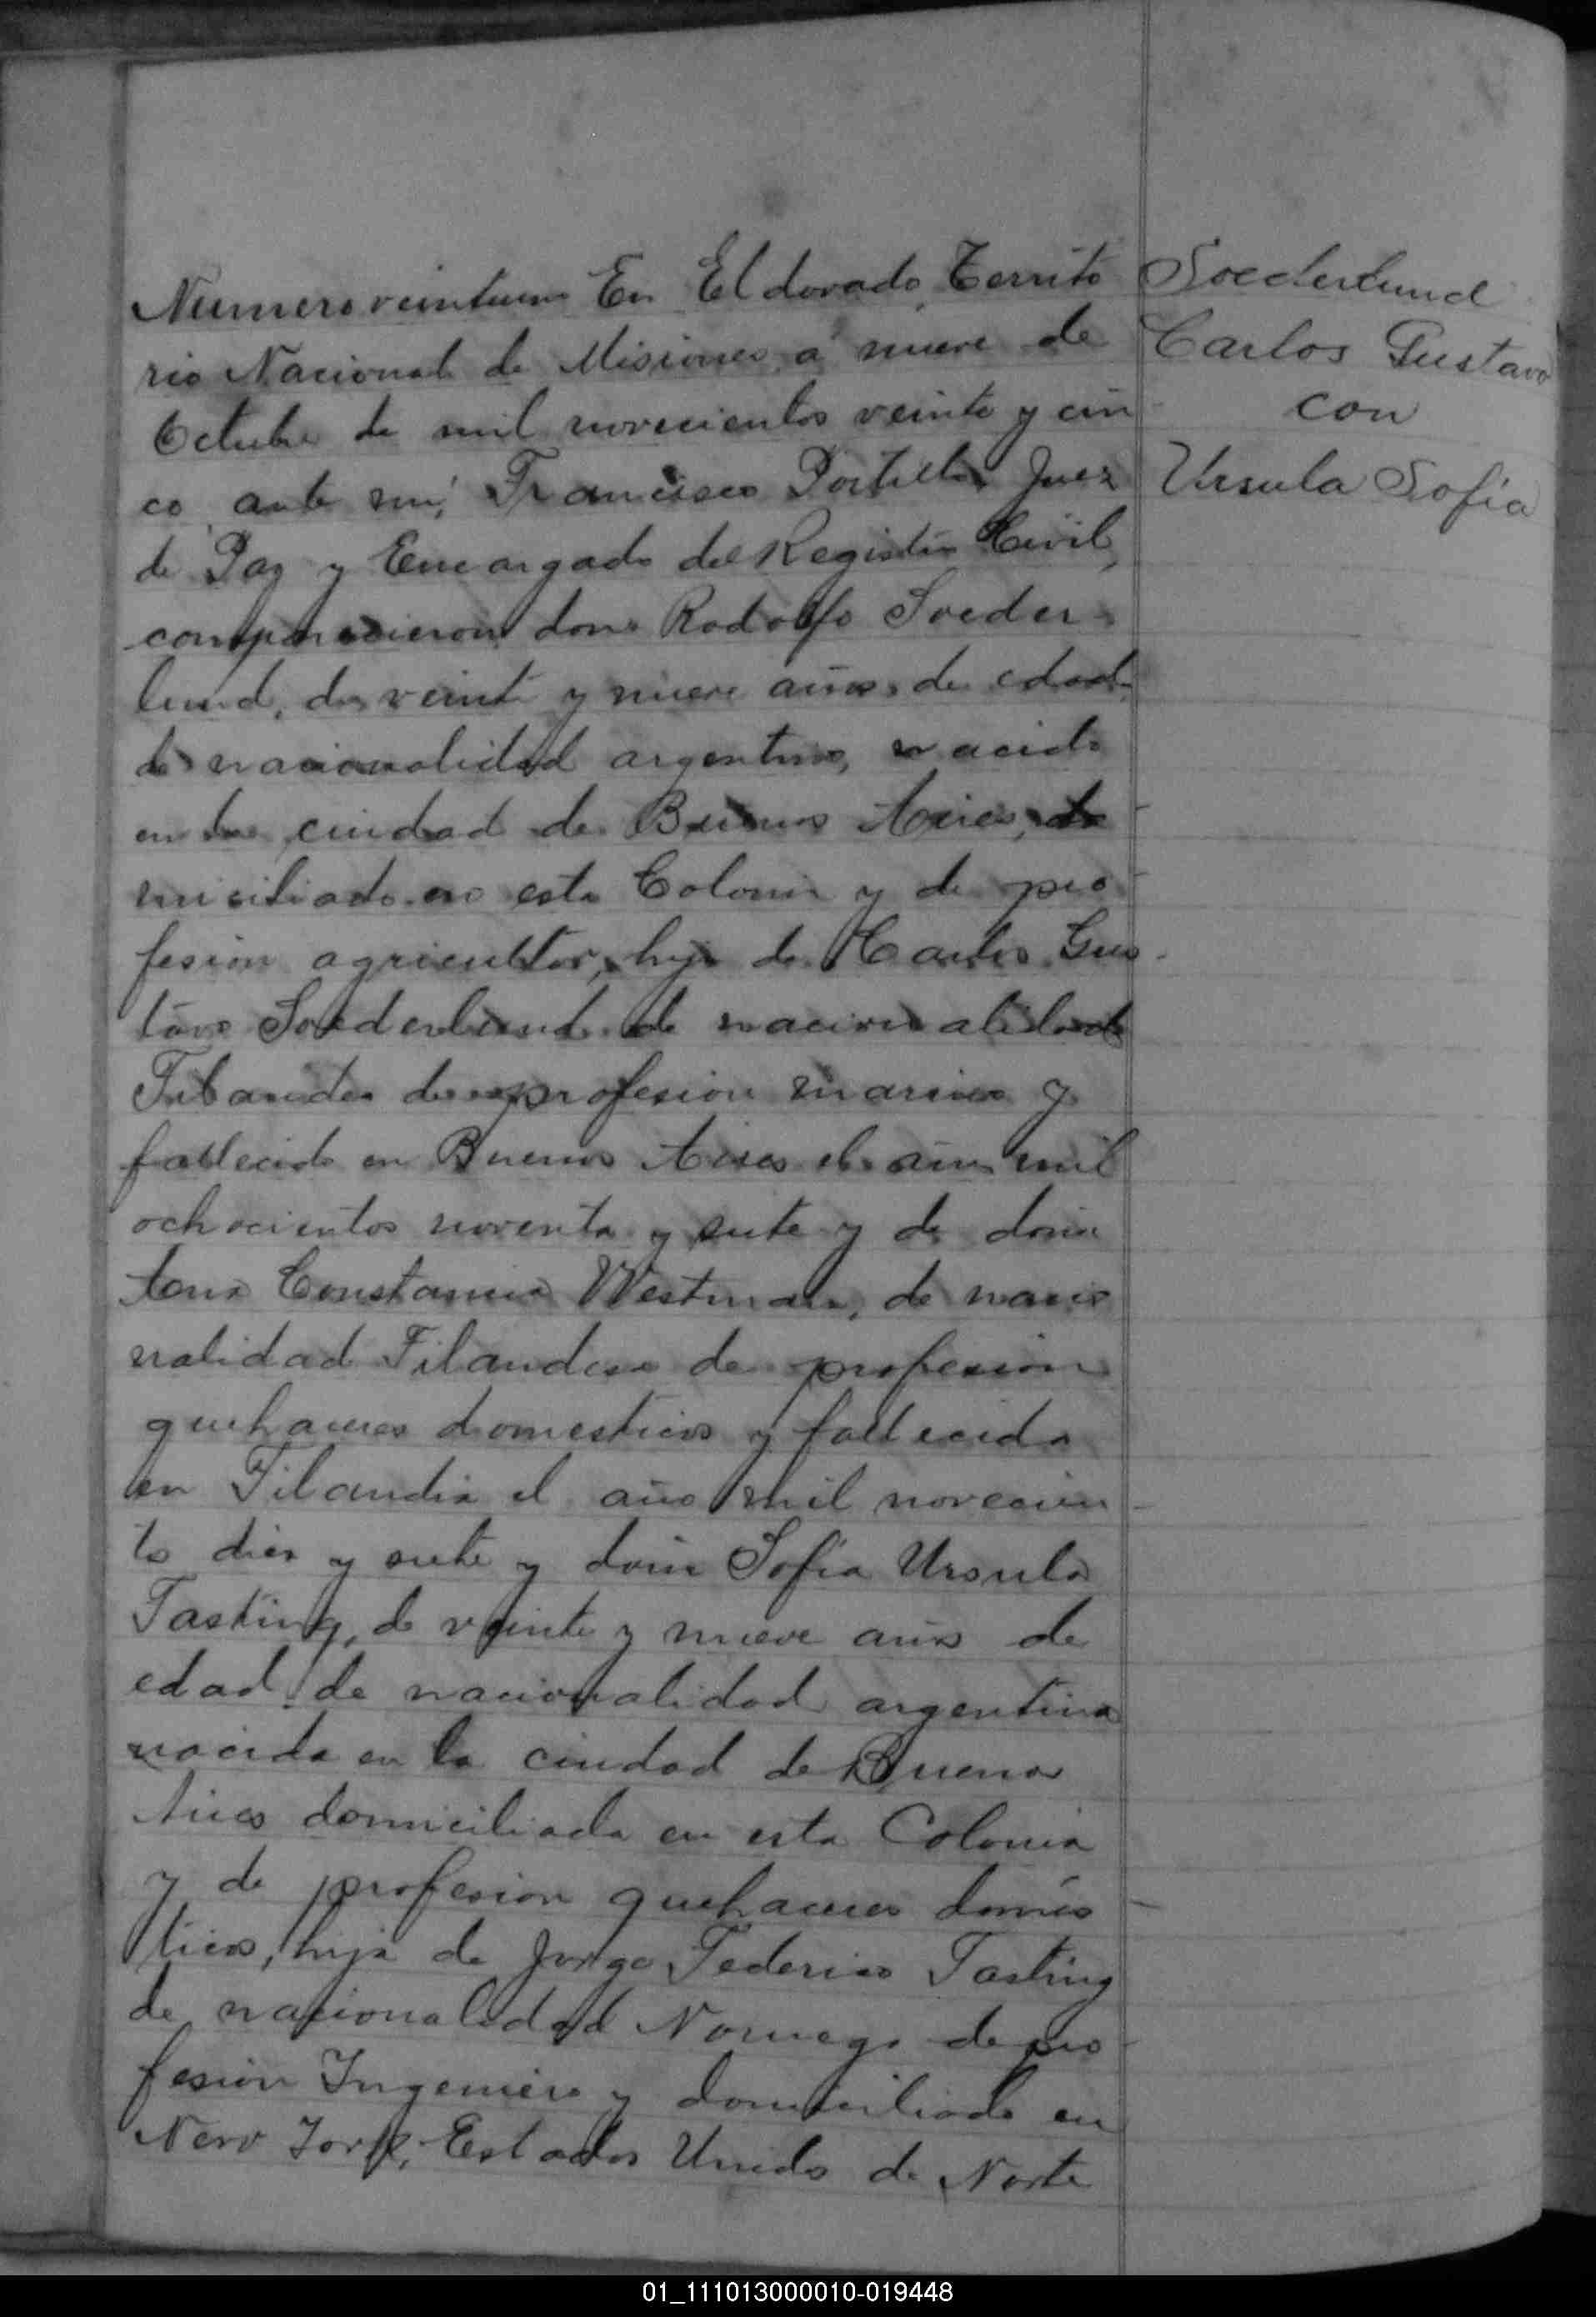 Numero veintiuno En Eldorado, Territo
rio Nacional de Misiones a nueve de
Octubre de mil novecientos veinte y cin
co ante mi, Francisco Portillo, Juez
de Paz y Encargado del Registro Civil,
comparecieron don Rodolfo Soeder
lund, de veinte y nueve años de edad
de nacionalidad argentino, nacido
en la ciudad de Buenos Aires, do
miciliado en esta Colonia y de pro
fesion agricultor, hijo de Carlos Gus
tavo Soederlund de nacionalidad
Filandes de profesion marino y
fallecido en Buenos Aires el año mil
ochocientos noventa y siete y de doña
Ana Constancia Westman, de nacio
nalidad Filandesa de profesion
quehaceres domesticos y fallecida
en Filandia el año mil novecien
to diez y siete y doña Sofia Ursula
Tasting, de veinte y nueve años de
edad de nacionalidad argentina
nacida en la ciudad de Buenos
Aires domiciliada en esta Colonia
y de profesion quehaceres domés
ticos, hija de Jorge Federico Tasting
de nacionalidad Noruego de pro
fesion Ingeniero y domiciliado en
New York, Estados Unidos de Norte
Soederlund
Carlos Gustavo
con
Ursula Sofía
01_111013000010-019448